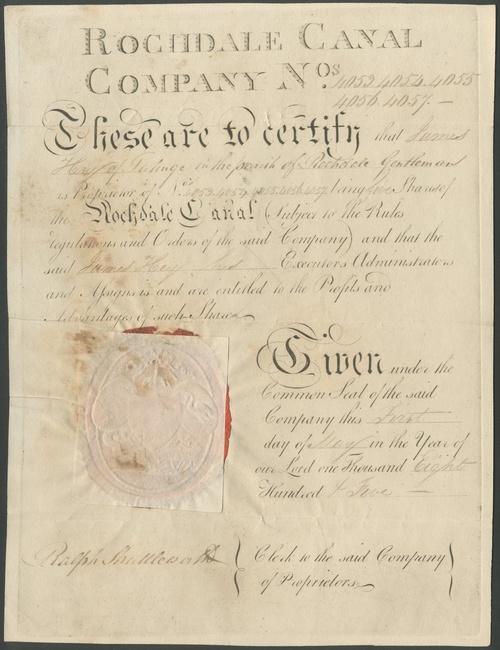 ROCHDALE CANAL
COMPANY Nos. 4053 4054 4055
4056 4057. —
These are to certify that James
Hey of in the parish of Rochdale Gentleman
is Proprietor of Nos 4053 4054 4055 4056 4057 being five Shares of
the Rochdale Canal (Subject to the Rules
regulations and Orders of the said Company) and that the
said James Hey his Executors Administrators
and Assigns is and are entitled to the Profits and
Advantages of such Shares
Given under the
Common Seal of the said
Company this First
day of May in the Year of
our Lord one Thousand Eight
Hundred & Five —
Ralph Shuttleworth { Clerk to the said Company }
of Proprietors